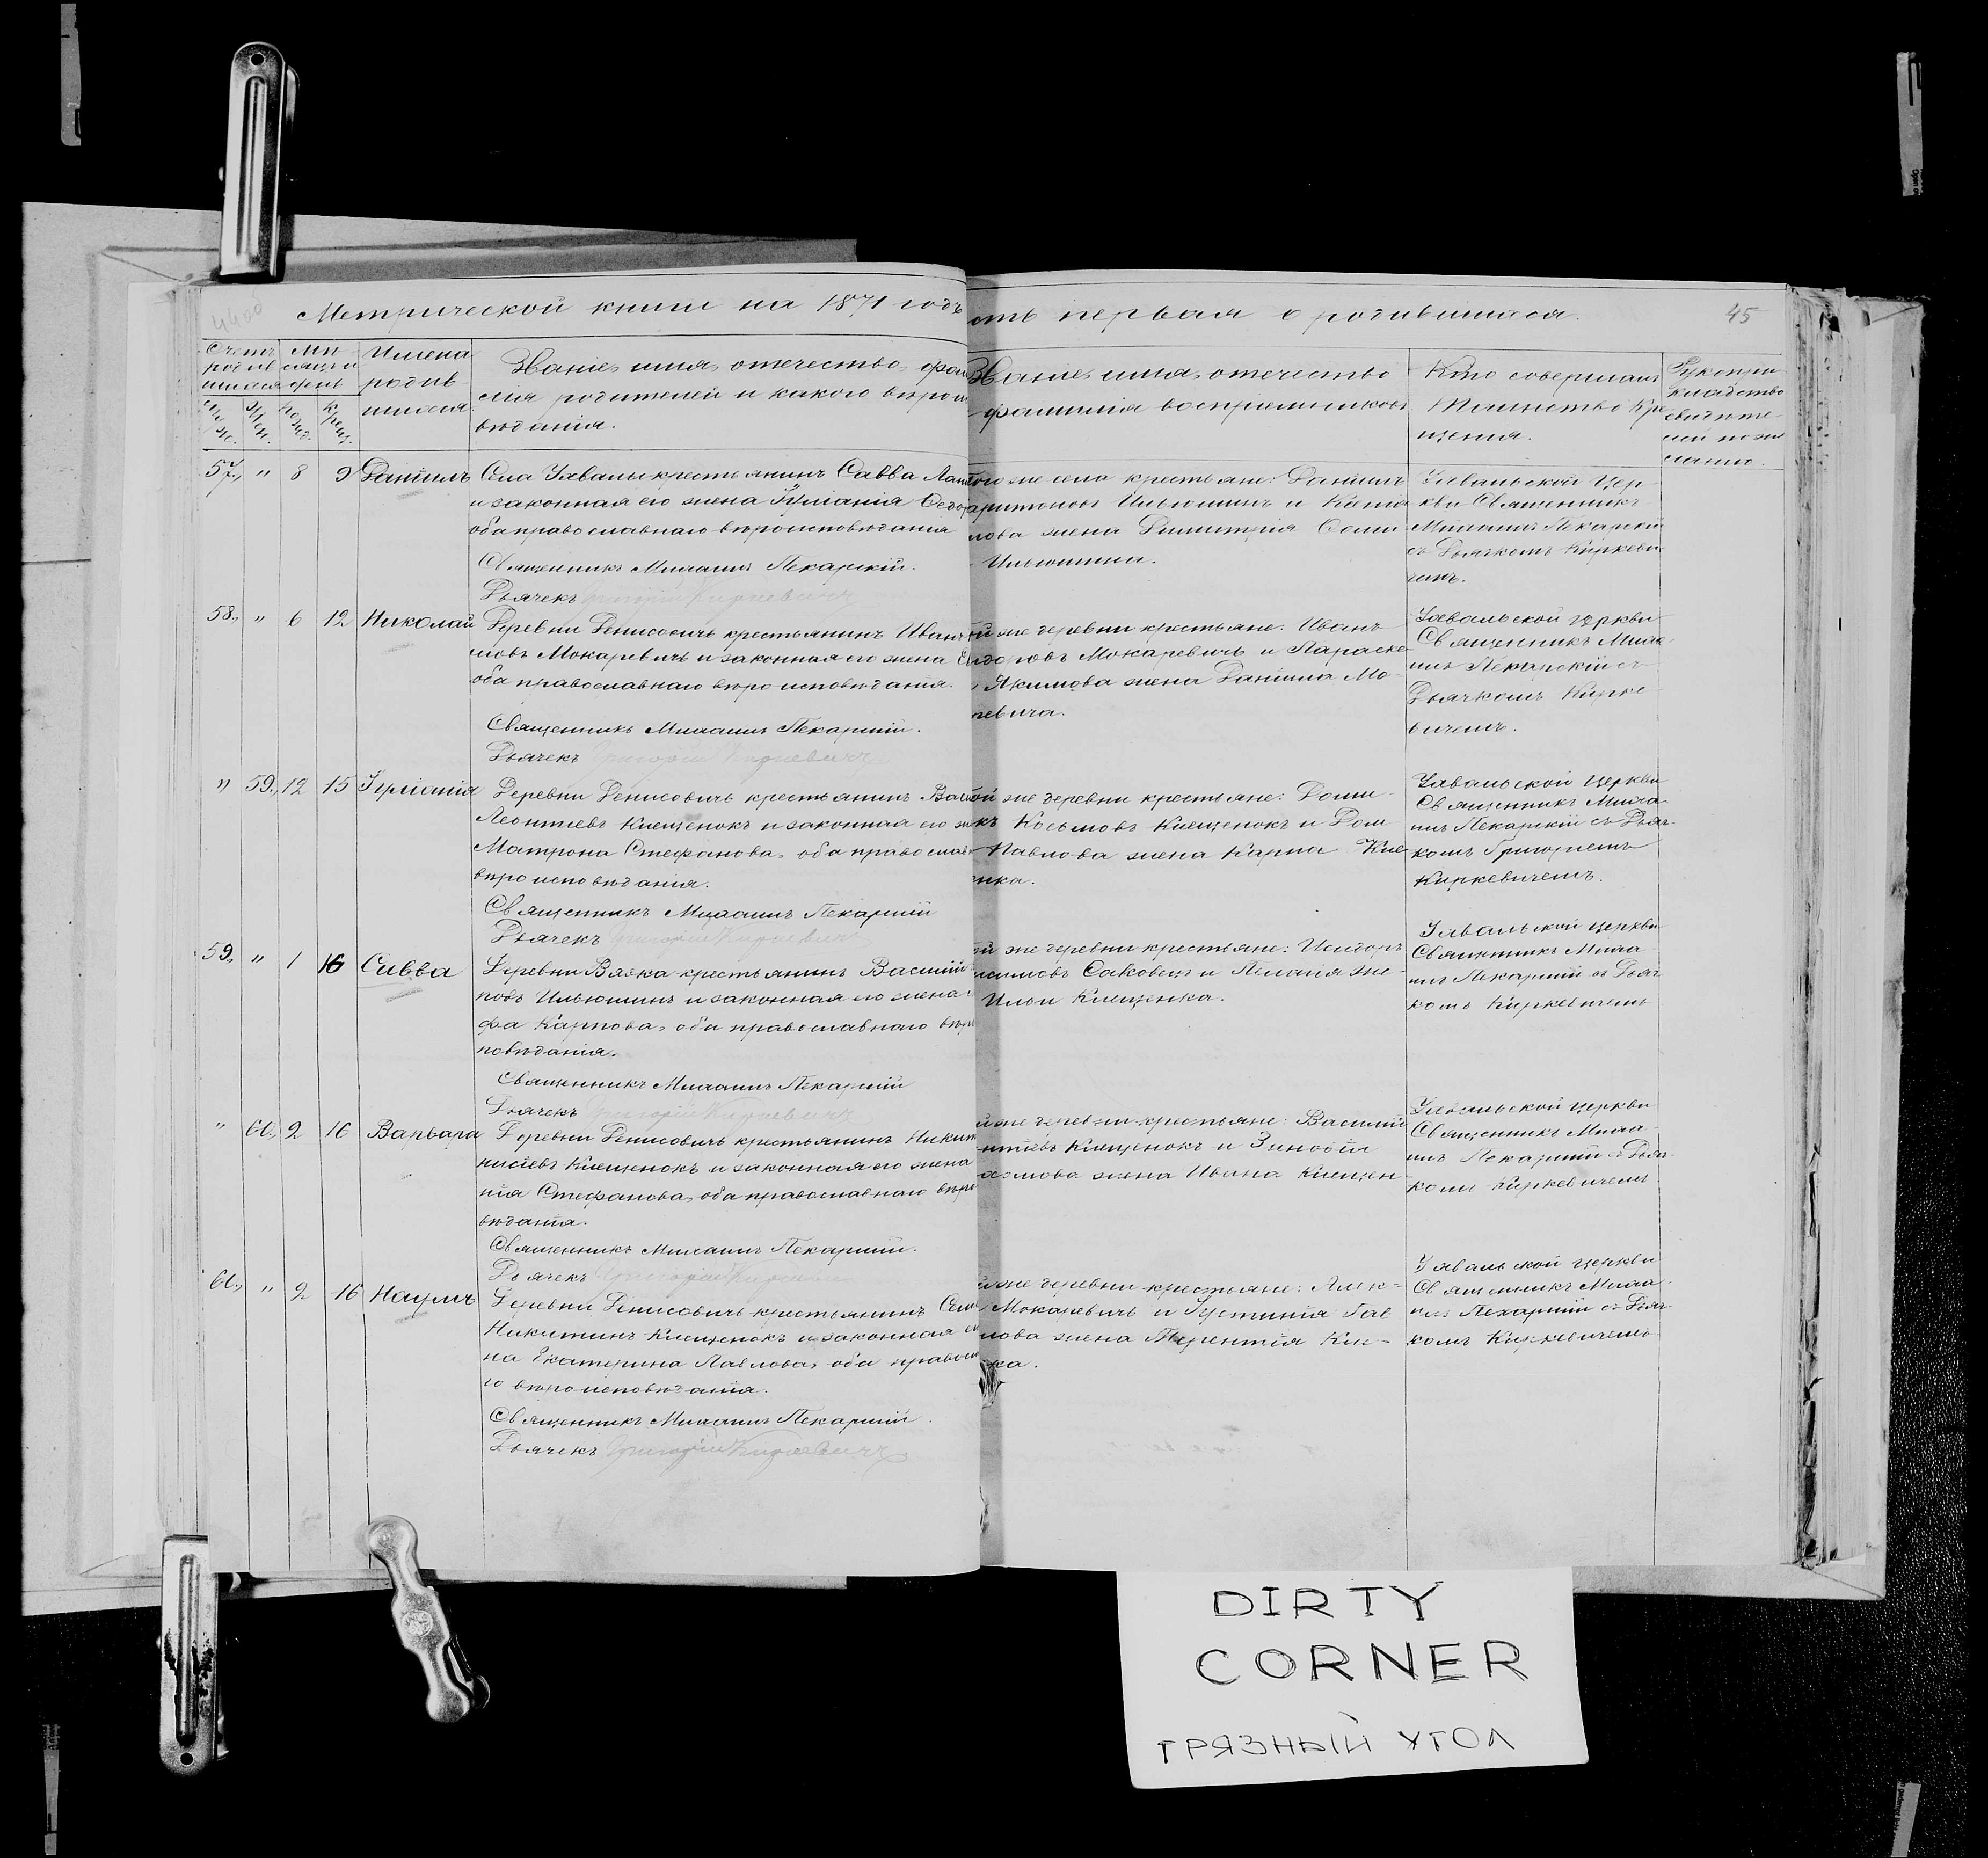 Метрической книги на 1871 годъ
сть первая о родившихся.
45
Счетъ родив шихся
Мѣ сяцъ и день
Имена родив шихся.
Званіе, имя, отечество, фами
лія родителей и какого вѣроис
вѣданія.
Званіе, имя, отечество
фамилія воспріемниковъ
Кто совершалъ
Таинство Кре
щенія.
Рукопри
кладство
свидѣте
лей по же
ланію.
57., " 8 9 Даніилъ
Села Улвалы крестьянинъ Савва
и законная его жена Іуліанія Ѳедор
оба православнаго вѣроисповѣданія
Священникъ Михаилъ Пекарскій.
Дьячекъ Григорій Киркевичъ
того же села крестьяне: Даніилъ
аритоновъ Ильюшинъ и
лова жена Димитрія
Ильюшина.
Улвальской Цер-
кви Священникъ
Михаилъ Пекарскій
съ Дьячкомъ Киркеви-
чемъ.
58., " 6 12 Николай
Деревни Денисовичь крестьянинъ Иванъ
мовъ Мокаревичъ и законная его жена
оба православнаго вѣроисповѣданія.
Священникъ Михаилъ Пекарскій.
Дьячекъ Григорій Киркевичъ
ой же деревни крестьяне: Иванъ
Сидоровъ Мокаревичъ и Параске-
Якимова жена Даніила Мо-
ревича.
Улвальской церкви
Священникъ Миха-
илъ Пекарскій съ
Дьячкомъ Кирке-
вичемъ.
" 59., 12 15 Іуліанія
Деревни Денисовичь крестьянинъ Васи
Леонтіевъ Клещенокъ и законная его же
Матрона Стефанова, оба православ
вѣроисповѣданія.
Священникъ Михаилъ Пекарскій
Дьячекъ Григорій Киркевичъ
ой же деревни крестьяне: Доми-
къ Косьмовъ Клещенокъ и Дом
Павлова жена Карпа Кле-
енка.
Улвальской церкви
Священникъ Миха-
илъ Пекарскій съ Дьяч-
комъ Григоріемъ
Киркевичемъ.
59., " 1 16 Савва
Деревни Вязка крестьянинъ Василій
повъ Ильюшинъ и законная его жена
фа Карпова, оба православнаго вѣро
повѣданія.
Священникъ Михаилъ Пекарскій
Дьячекъ Григорій Киркевичъ
ой же деревни крестьяне: Исидоръ
Саковецъ и Пелагія же-
Ильи Клещенка.
Улвальской церкви
Священникъ Миха-
илъ Пекарскій съ Дьяч-
комъ Киркевичемъ
" 60., 2 16 Варвара
Деревни Денисовичь крестьянинъ Никит
нисіевъ Клещенокъ и законная его жена
нія Стефанова, оба православнаго вѣро
вѣданія.
Священникъ Михаилъ Пекарскій.
Дьячекъ Григорій Киркевичъ
й же деревни крестьяне: Василій
нтіевъ Клещенокъ и Зиновія
жена Ивана Клещен-
Улвальской церкви
Священникъ Миха-
илъ Пекарскій съ Дьяч-
комъ Киркевичемъ.
60., " 2 16 Наумъ
Деревни Денисовичь крестьянинъ Сем
Никитинъ Клещенокъ и законная ег
на Екатерина Павлова, оба правосл
го вѣроисповѣданія.
Священникъ Михаилъ Пекарскій.
Дьячекъ Григорій Киркевичъ
й же деревни крестьяне:
Мокаревичъ и Іустинія Гав
лова жена Терентія Кле-
ка.
Улвальской церкви
Священникъ Миха-
илъ Пекарскій съ Дьяч-
комъ Киркевичемъ
DIRTY
CORNER
ГРЯЗНЫЙ УГОЛ